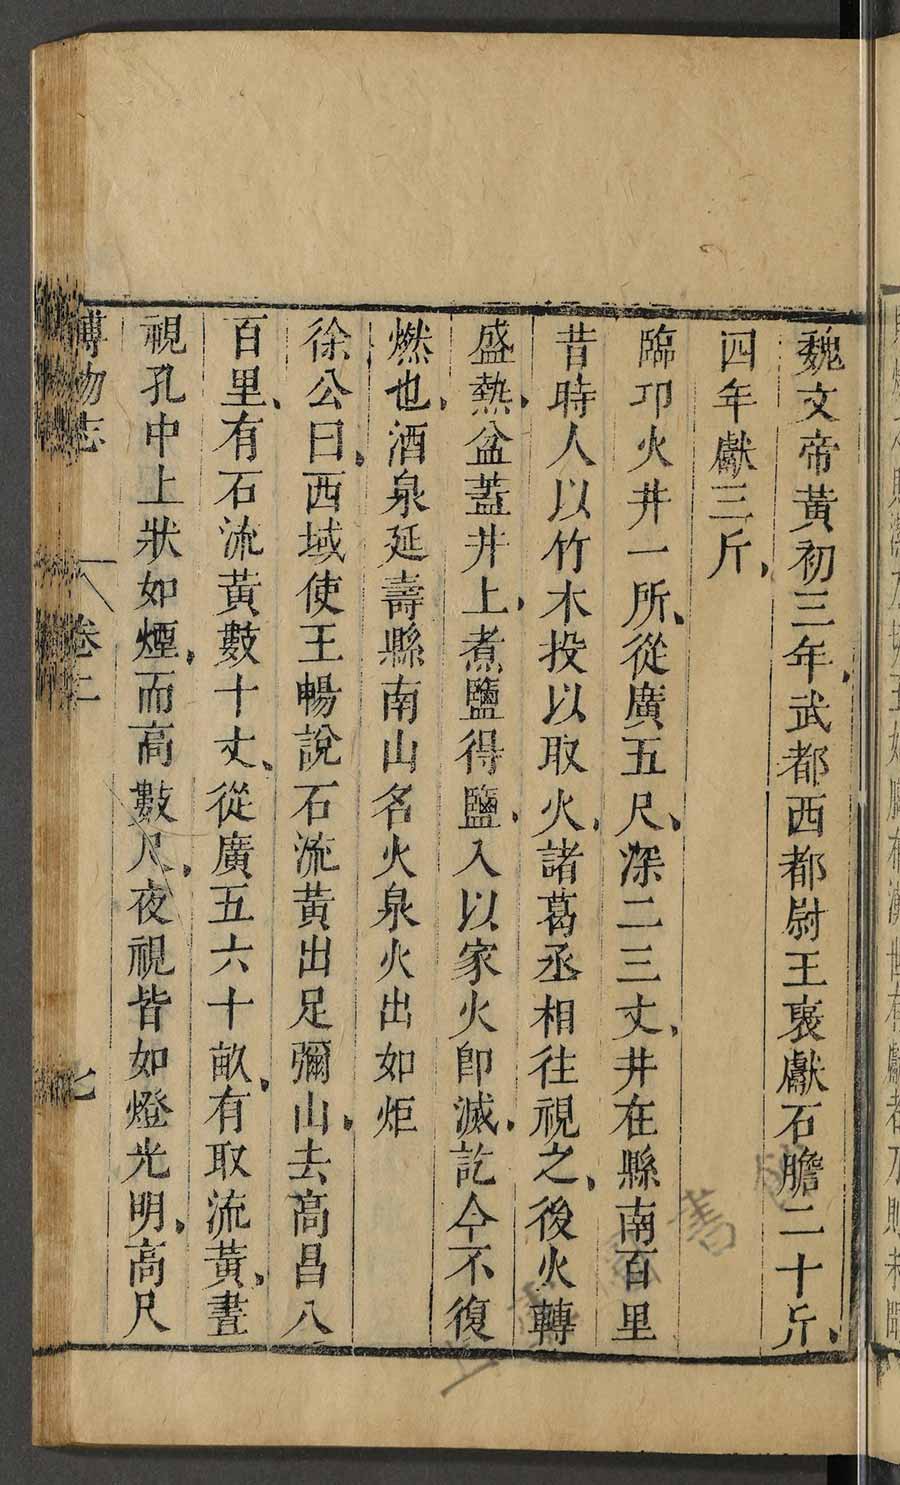 魏文帝黃初三年、武都西都尉王褒獻石膽二十斤、
四年獻三斤、
臨卭火井一所、從廣五尺、深二三丈、井在縣南百里
昔時人以竹木投以取火、諸葛丞相往視之、後火轉
盛熱、盆蓋井上、煮鹽得鹽、入以家火卽滅、訖今不復
燃也、酒泉延壽縣南山名火泉火出如炬
徐公曰、西域使王暢說石流黃出足彌山、去高昌八
百里、有石流黃數十丈、從廣五六十畝、有取流黃、晝
視孔中上狀如煙、而高數尺、夜視皆如燈光明、高尺
博物志 卷二 七